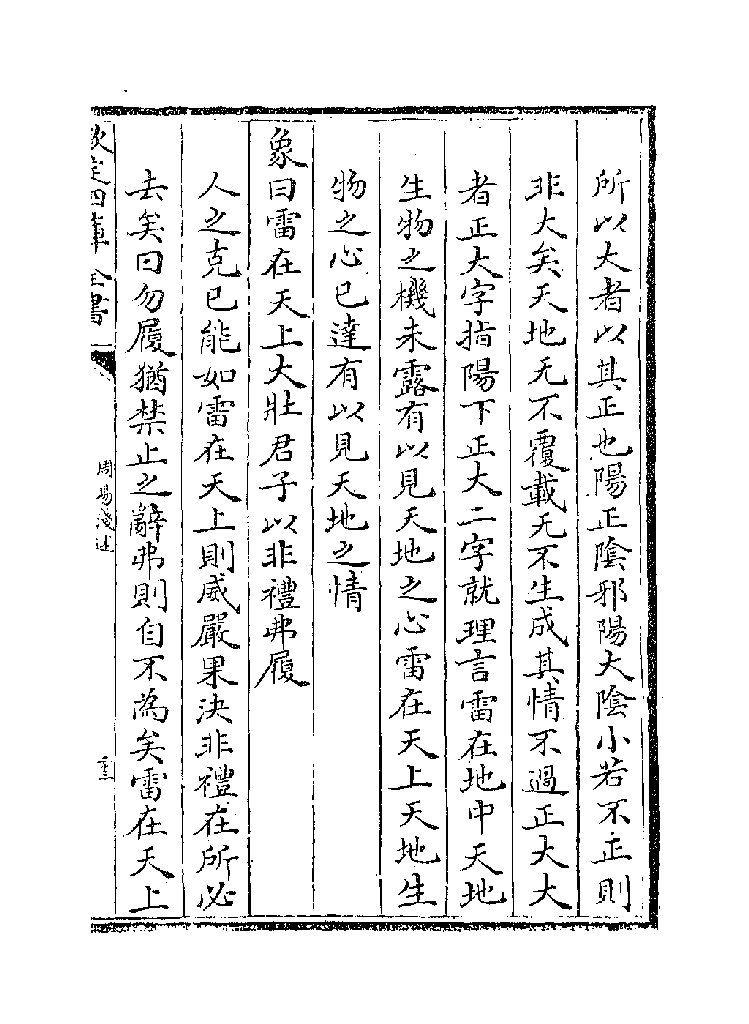 所以大者以其正也陽正陰邪陽大陰小若不正則
非大矣天地无不覆載无不生成其情不過正大大
者正大字指陽下正大二字就理言雷在地中天地
生物之機未露有以見天地之心雷在天上天地生
物之心已達有以見天地之情
象曰雷在天上大壯君子以非禮弗履
人之克已能如雷在天上則威嚴果決非禮在所必
去矣曰勿履猶禁止之辭弗則自不為矣雷在天上
欽定四庫全書
周易淺述